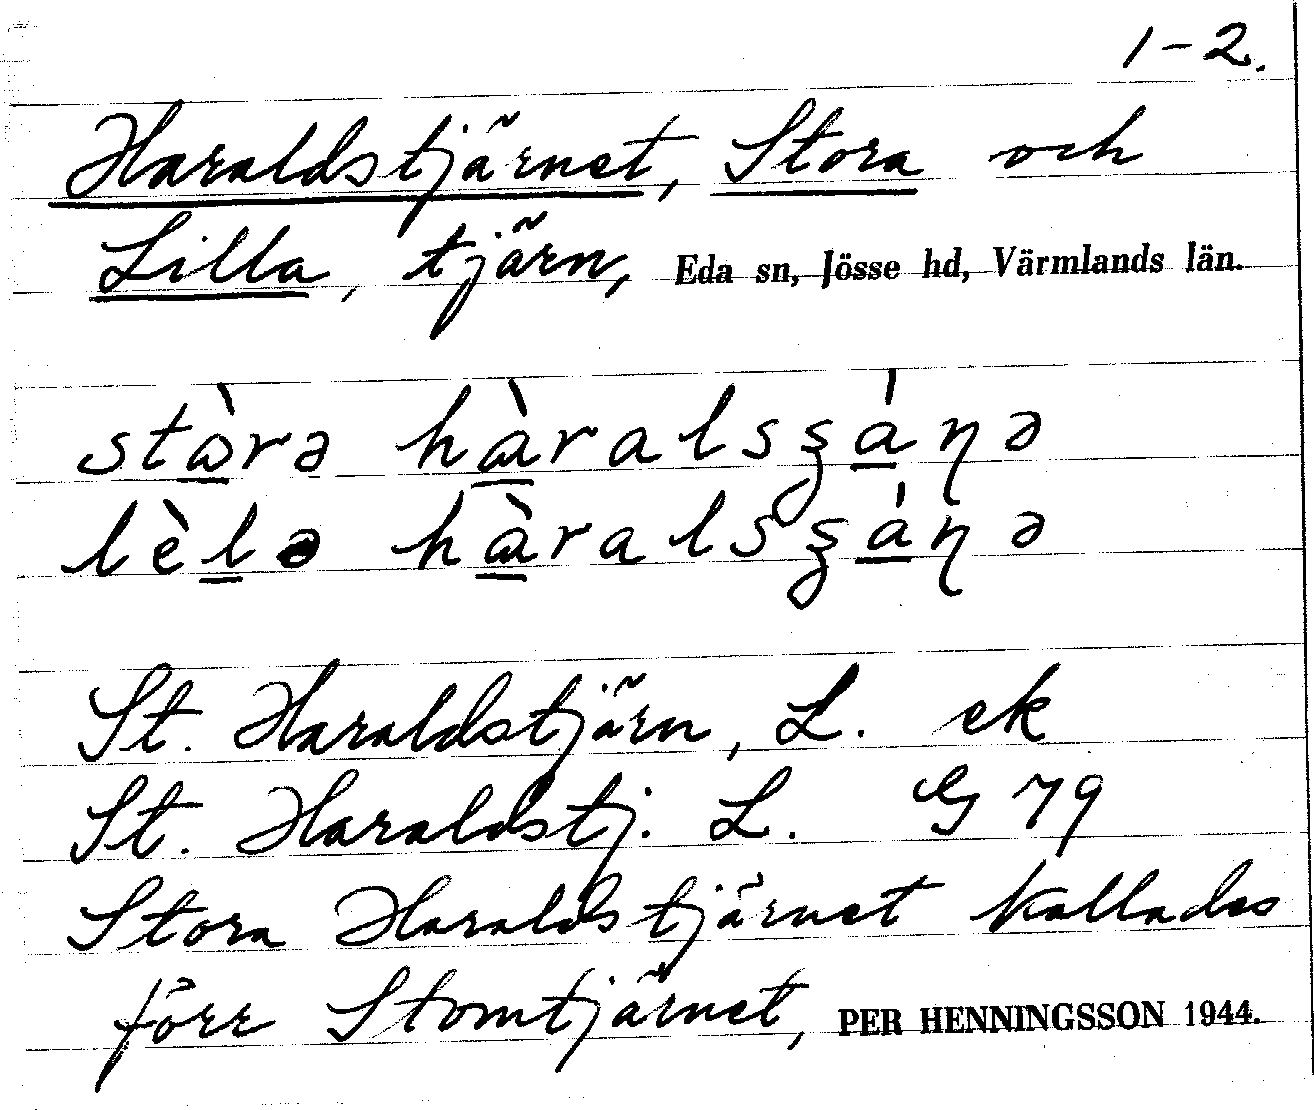 1-2.
Haraldstjärnet, Stora och
Lilla, tjärn, Eda sn, Jösse hd, Värmlands län.
stɷ̀rə hàralsʂáɳə
lèlə hàralsʂáɳə
St. Haraldstjärn, L. ek
St. Haraldstj. L. G 79
Stora Haraldstjärnet kallades
förr Stomtjärnet, PER HENNINGSSON 1944.